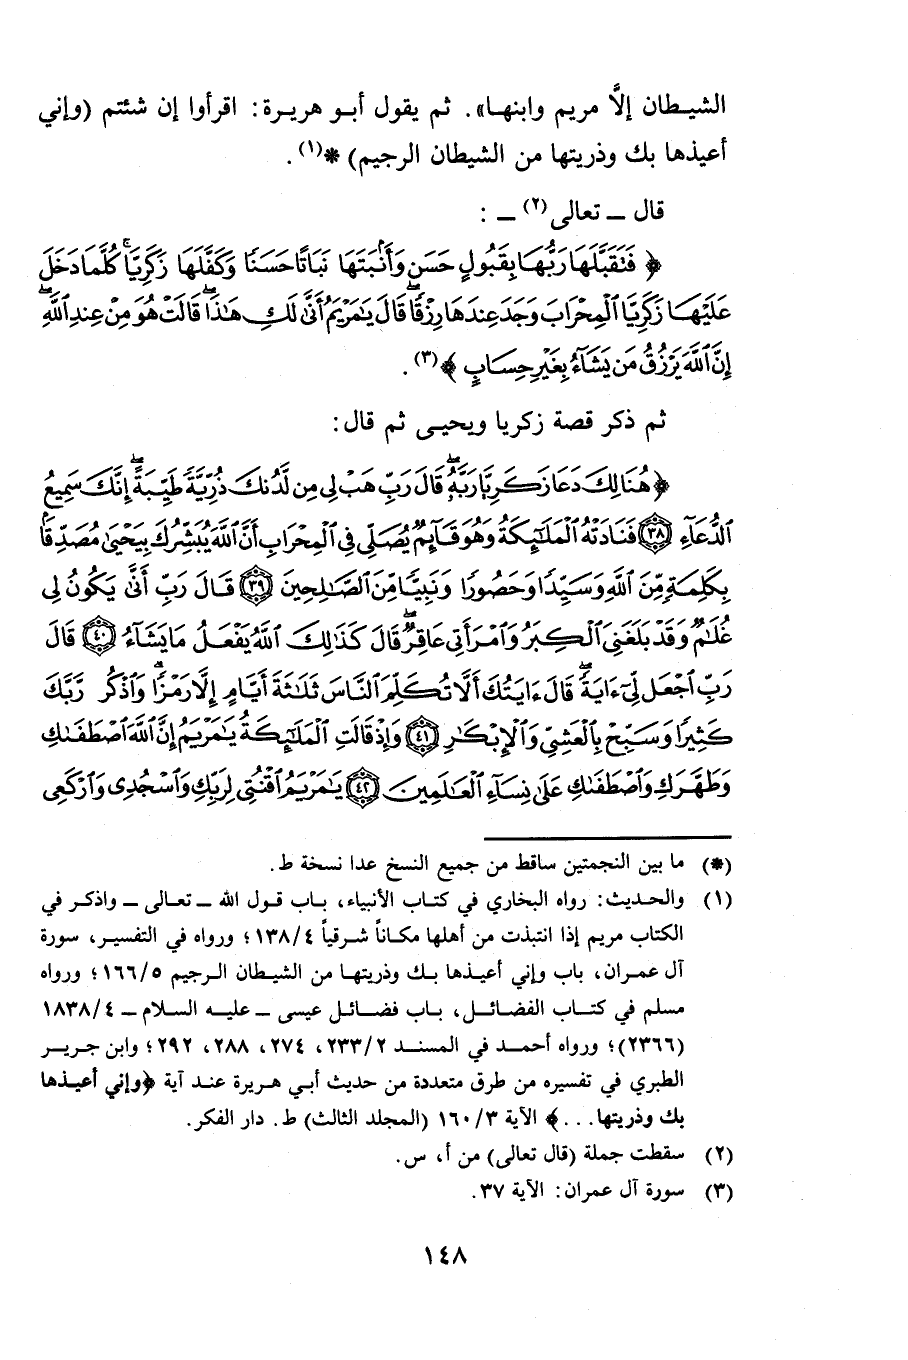 الشيطان إلاَّ مريم وابنها». ثم يقول أبو هريرة: اقرأوا إن شئتم (وإني
أعيذها بك وذريتها من الشيطان الرجيم) *(١).
قال ــ تعالى(٢) ــ :
﴿ فَتَقَبَّلَهَا رَبُّهَا بِقَبُولٍ حَسَنٍ وَأَنۢبَتَهَا نَبَاتًا حَسَنًا وَكَفَّلَهَا زَكَرِيَّا ۖ كُلَّمَا دَخَلَ
عَلَيْهَا زَكَرِيَّا ٱلْمِحْرَابَ وَجَدَ عِندَهَا رِزْقًا ۖ قَالَ يَـٰمَرْيَمُ أَنَّىٰ لَكِ هَـٰذَا ۖ قَالَتْ هُوَ مِنْ عِندِ ٱللَّهِ ۖ
إِنَّ ٱللَّهَ يَرْزُقُ مَن يَشَآءُ بِغَيْرِ حِسَابٍ ﴾(٣).
ثم ذكر قصة زكريا ويحيى ثم قال:
﴿ هُنَالِكَ دَعَا زَكَرِيَّا رَبَّهُۥ ۖ قَالَ رَبِّ هَبْ لِى مِن لَّدُنكَ ذُرِّيَّةً طَيِّبَةً ۖ إِنَّكَ سَمِيعُ
ٱلدُّعَآءِ ٣٨ فَنَادَتْهُ ٱلْمَلَـٰٓئِكَةُ وَهُوَ قَآئِمٌ يُصَلِّى فِى ٱلْمِحْرَابِ أَنَّ ٱللَّهَ يُبَشِّرُكَ بِيَحْيَىٰ مُصَدِّقًۢا
بِكَلِمَةٍ مِّنَ ٱللَّهِ وَسَيِّدًا وَحَصُورًا وَنَبِيًّا مِّنَ ٱلصَّـٰلِحِينَ ٣٩ قَالَ رَبِّ أَنَّىٰ يَكُونُ لِى
غُلَـٰمٌ وَقَدْ بَلَغَنِىَ ٱلْكِبَرُ وَٱمْرَأَتِى عَاقِرٌ ۖ قَالَ كَذَٰلِكَ ٱللَّهُ يَفْعَلُ مَا يَشَآءُ ٤٠ قَالَ
رَبِّ ٱجْعَل لِّىٓ ءَايَةً ۖ قَالَ ءَايَتُكَ أَلَّا تُكَلِّمَ ٱلنَّاسَ ثَلَـٰثَةَ أَيَّامٍ إِلَّا رَمْزًا ۗ وَٱذْكُر رَّبَّكَ
كَثِيرًا وَسَبِّحْ بِٱلْعَشِىِّ وَٱلْإِبْكَـٰرِ ٤١ وَإِذْ قَالَتِ ٱلْمَلَـٰٓئِكَةُ يَـٰمَرْيَمُ إِنَّ ٱللَّهَ ٱصْطَفَىٰكِ
وَطَهَّرَكِ وَٱصْطَفَىٰكِ عَلَىٰ نِسَآءِ ٱلْعَـٰلَمِينَ ٤٢ يَـٰمَرْيَمُ ٱقْنُتِى لِرَبِّكِ وَٱسْجُدِى وَٱرْكَعِى
(*) ما بين النجمتين ساقط من جميع النسخ عدا نسخة ط.
(١) والحديث: رواه البخاري في كتاب الأنبياء، باب قول الله ــ تعالى ــ واذكر في
الكتاب مريم إذا انتبذت من أهلها مكاناً شرقياً ١٣٨/٤؛ ورواه في التفسير، سورة
آل عمران، باب وإني أعيذها بك وذريتها من الشيطان الرجيم ١٦٦/٥؛ ورواه
مسلم في كتاب الفضائل، باب فضائل عيسى ــ عليه السلام ــ ١٨٣٨/٤
(٢٣٦٦)؛ ورواه أحمد في المسند ٢٣٣/٢، ٢٧٤، ٢٨٨، ٢٩٢؛ وابن جرير
الطبري في تفسيره من طرق متعددة من حديث أبي هريرة عند آية ﴿وإني أعيذها
بك وذريتها...﴾ الآية ١٦٠/٣ (المجلد الثالث) ط. دار الفكر.
(٢) سقطت جملة (قال تعالى) من أ، س.
(٣) سورة آل عمران: الآية ٣٧.
١٤٨